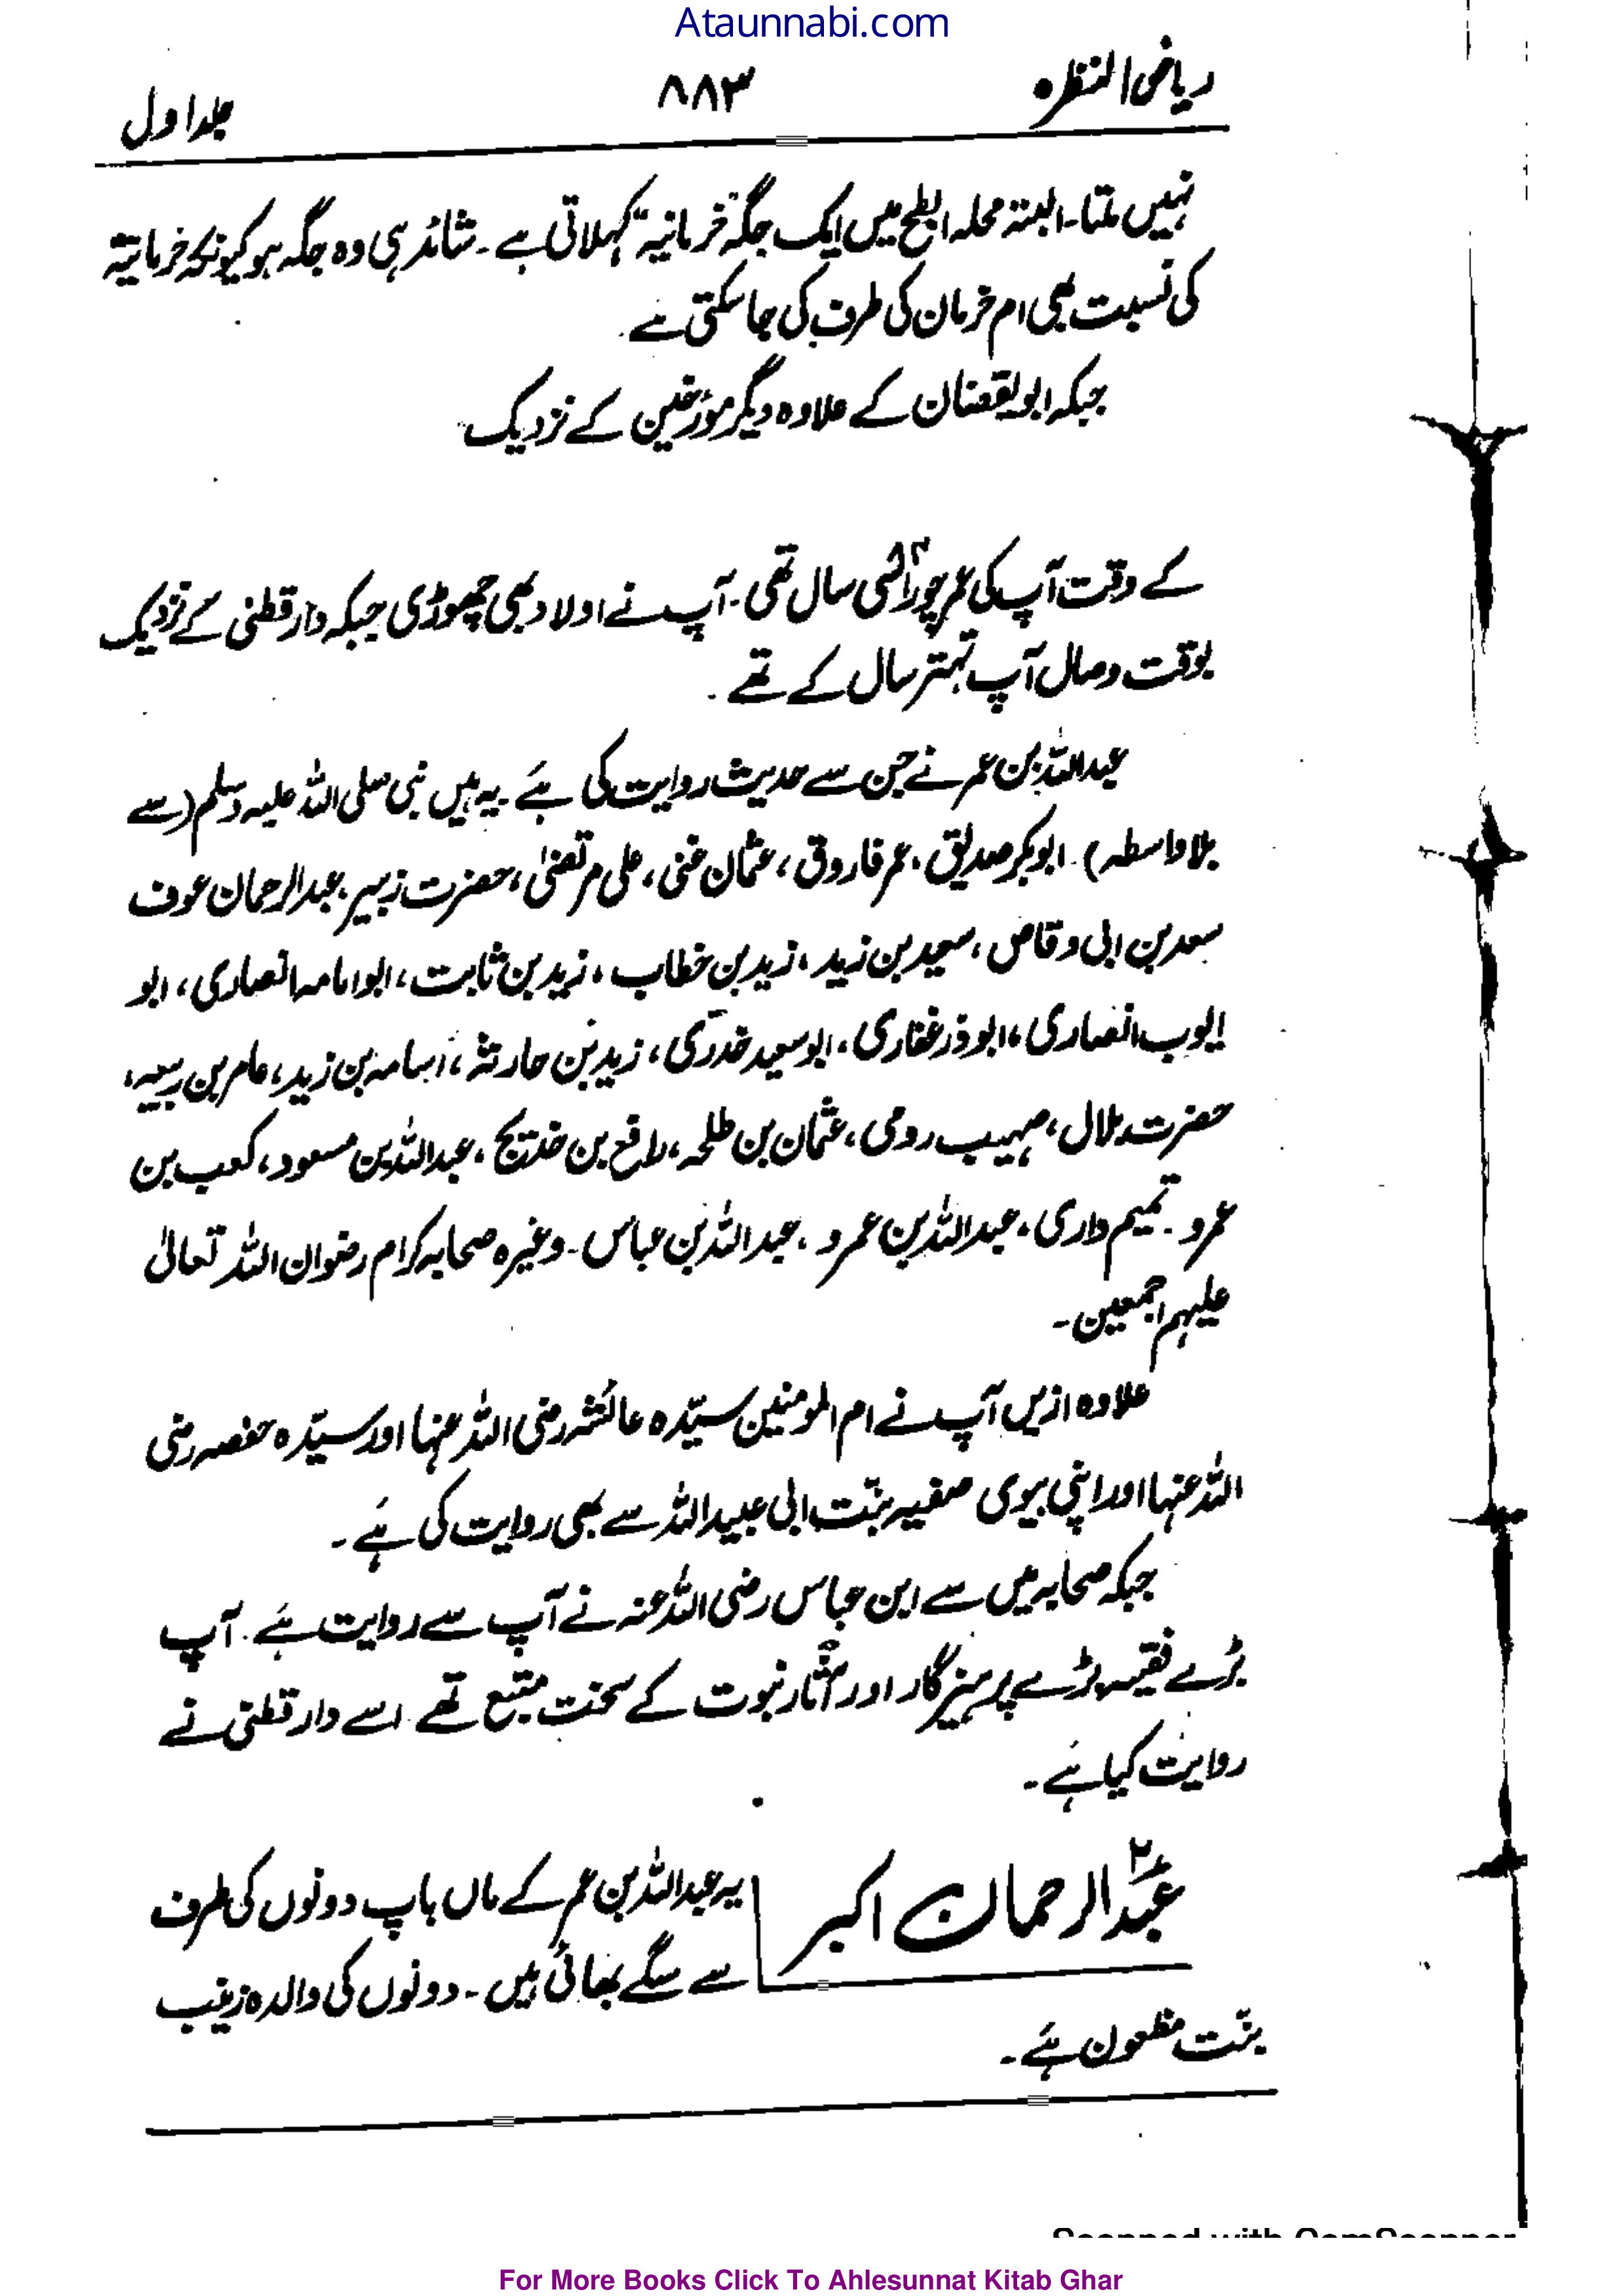 Ataunnabi.com
ریاض النضرہ ۸۸۳ جلد اول
نہیں ملتا۔ البتہ محلہ ابطح میں ایک جگہ "خرمانیہ" کہلاتی ہے۔ شائد ہی وہ جگہ ہو کیونکہ خرمانیہ
کی نسبت بھی ام خرمان کی طرف کی جا سکتی ہے۔
جبکہ ابو یقضان کے علاوہ دیگر مؤرخین کے نزدیک
کے وقت آپ کی عمر چوراسی ۸۴ سال تھی۔ آپ نے اولاد بھی چھوڑی جبکہ دارقطنی کے نزدیک
بوقت وصال آپ تہتر سال کے تھے۔
عبداللہ بن عمر نے جن سے حدیث روایت کی ہے یہ ہیں نبی صلی اللہ علیہ وسلم (سے
بلا واسطہ) ابوبکر صدیق، عمر فاروق، عثمان غنی، علی مرتضیٰ، حضرت زبیر، عبدالرحمان عوف
سعد بن ابی وقاص، سعید بن زید، زید بن خطاب، زید بن ثابت، ابو امامہ انصاری، ابو
ایوب انصاری، ابوذر غفاری، ابو سعید خدری، زید بن حارثہ، اسامہ بن زید، عامر بن ربیعہ،
حضرت بلال، صہیب رومی، عثمان بن طلحہ، رافع بن خدیج، عبداللہ بن مسعود، کعب بن
عمرو۔ تمیم داری، عبداللہ بن عمرو، عبداللہ بن عباس۔ وغیرہ صحابہ کرام رضوان اللہ تعالیٰ
علیہم اجمعین۔
علاوہ ازیں آپ نے ام المومنین سیّدہ عائشہ رضی اللہ عنہا اور سیّدہ حفصہ رضی
اللہ عنہا اور اپنی بیوی صفیہ بنت ابی عبید اللہ سے بھی روایت کی ہے۔
جبکہ صحابہ میں سے ابن عباس رضی اللہ عنہ نے آپ سے روایت ہے۔ آپ
بڑے فقیہ بڑے پرہیز گار اور آثار نبوت کے سخت متبع تھے۔ اسے دارقطنی نے
روایت کیا ہے۔
عبدالرحمان اکبر
یہ عبداللہ بن عمر کے ماں باپ دونوں کی طرف
سے سگے بھائی ہیں۔ دونوں کی والدہ زینب
بنت مظعون ہے۔
Scanned with CamScanner
For More Books Click To Ahlesunnat Kitab Ghar